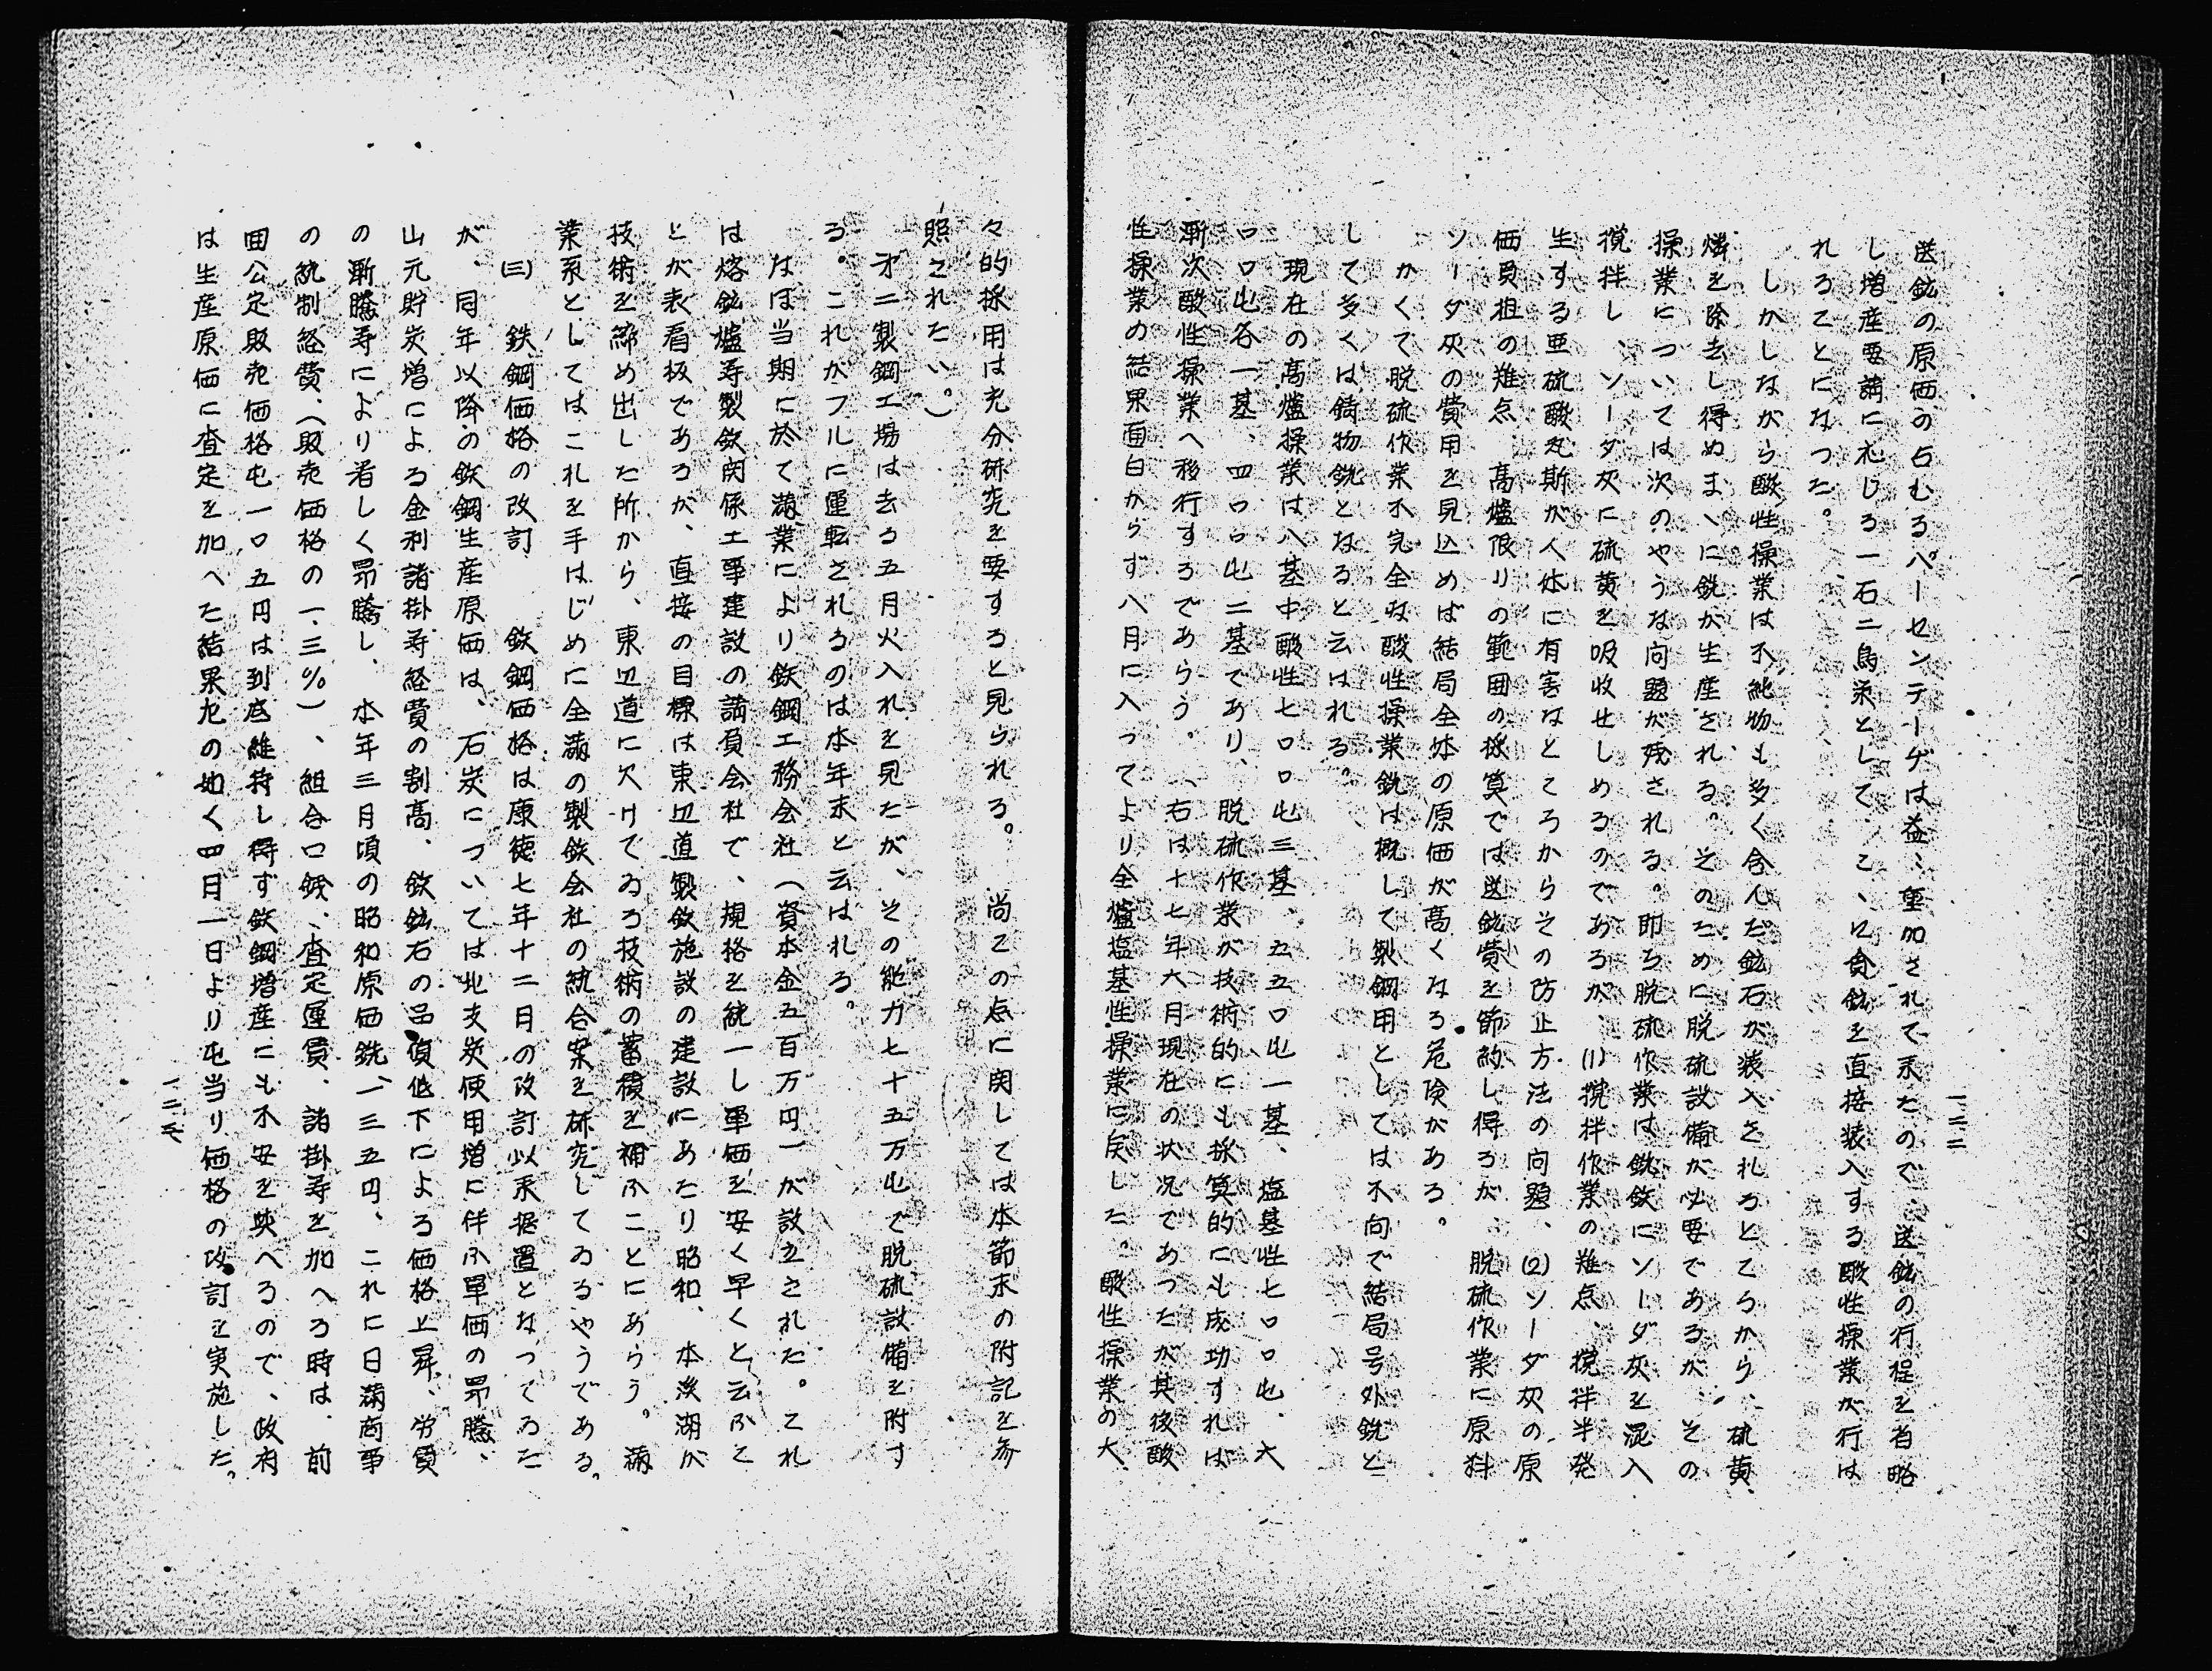 一二二
送鉱の原価の占むるパーセンテーヂは益々重加されて来たので、送鉱の行程を省略
し増産要請に応じる一石二鳥策として、こゝに貧鉱を直接装入する酸性操業が行は
れることになつた。
しかしながら酸性操業は不純物も多く含んだ鉱石が装入されるところから、硫黄、
燐を除去し得ぬまゝに銑が生産される。そのために脱硫設備が必要であるが、その
操業については次のやうな問題が残される。即ち脱硫作業は銑鉄にソーダ灰を混入
撹拌し、ソーダ灰に硫黄を吸收せしめるのであるが、(1)撹拌作業の難点、撹拌半発
生する亜硫酸瓦斯が人体に有害なところからその防止方法の問題、(2)ソーダ灰の原
価負担の難点、高爐限りの範囲の採算では送鉱費を節約し得るが、脱硫作業に原料
ソーダ灰の費用を見込めば結局全体の原価が高くなる危険がある。
かくて脱硫作業不完全な酸性操業銑は概して製鋼用としては不向で結局号外銑と
して多くは鋳物銑となると云はれる。
現在の高爐操業は八基中酸性七〇〇屯三基、五五〇屯一基、塩基性七〇〇屯、六
〇〇屯各一基、四〇〇屯二基であり、脱硫作業が技術的にも採算的にも成功すれば
漸次酸性操業へ移行するであらう。（右は十七年六月現在の状況であつたが其後酸
性操業の結果面白からず八月に入つてより全爐塩基性操業に戻した。酸性操業の大
々的採用は充分研究を要すると見られる。尚この点に関しては本節末の附記を参
照されたい。）
才二製鋼工場は去る五月火入れを見たが、その能力七十五万屯で脱硫設備を附す
る。これがフルに運転されるのは本年末と云はれる。
なほ当期に於て満業により鉄鋼工務会社（資本金五百万円）が設立された。これ
は熔鉱爐等製鉄関係工事建設の請負会社で、規格を統一し単価を安く早くと云ふこ
とが表看板であるが、直接の目標は東辺道製鉄施設の建設にあたり昭和、本渓湖が
技術を締め出した所から、東辺道に欠けてゐる技術の蓄積を補ふことにあらう。満
業系としてはこれを手はじめに全満の製鉄会社の統合案を研究してゐるやうである。
(三)　鉄鋼価格の改訂　鉄鋼価格は康徳七年十二月の改訂以来据置となつてゐた
が、同年以降の鉄鋼生産原価は、石炭については北支炭使用増に伴ふ単価の昂騰、
山元貯炭増による金利諸掛等経費の割高、鉄鉱石の品位低下による価格上昇、労賃
の漸騰等により著しく昂騰し、本年三月頃の昭和原価銑一三五円、これに日満商事
の統制経費、（販売価格の一、三％）、組合口銭、査定運賃、諸掛等を加へる時は、前
回公定販売価格屯一〇五円は到底維持し得ず鉄鋼増産にも不安を与へるので、政府
は生産原価に査定を加へた結果左の如く四月一日より屯当り価格の改訂を実施した。
一二三